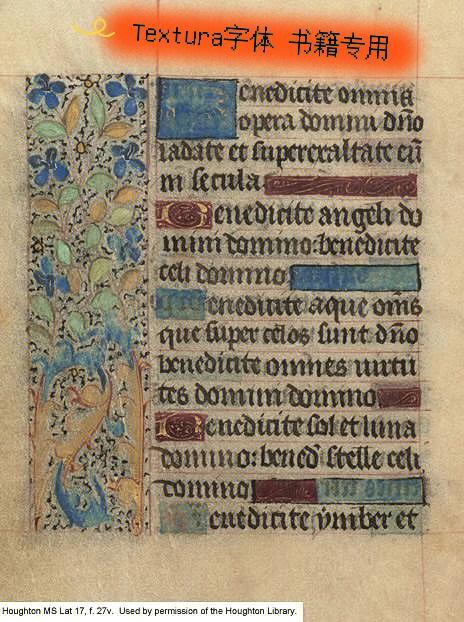 Textura字体 书籍专用
Benedicite omnia
opera domini dño
laudate et superexaltate eū
in secula.
Benedicite angeli do
mini domino: benedicite
celi domino
Benedicite aque om̄s
que super celos sunt dño
benedicite omnes virtu
tes domini domino
Benedicite sol et luna
domino: bened̄ stelle celi
domino
Benedicite ymber et
Houghton MS Lat 17, f. 27v. Used by permission of the Houghton Library.